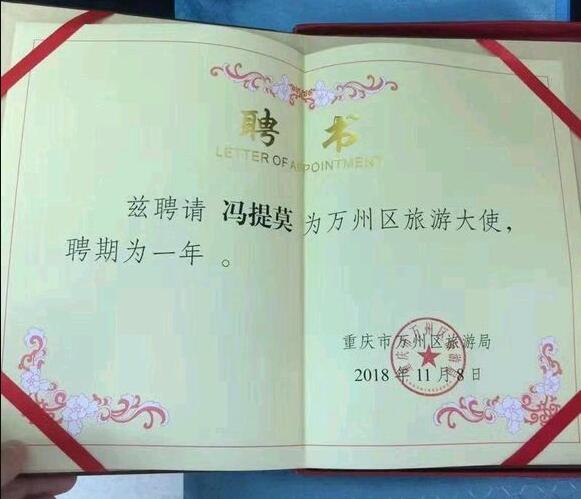 聘 书
LETTER OF APPOINTMENT
兹聘请 冯提莫 为万州区旅游大使，
聘期为一年 。
重庆市万州区旅游局
2018 年 11 月 8 日
重庆市万州区旅游局